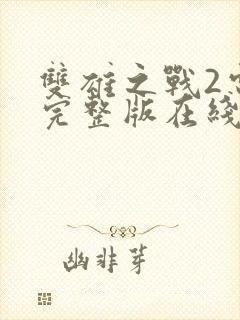 雙雄之戰2
完整版在綫
幽非芽